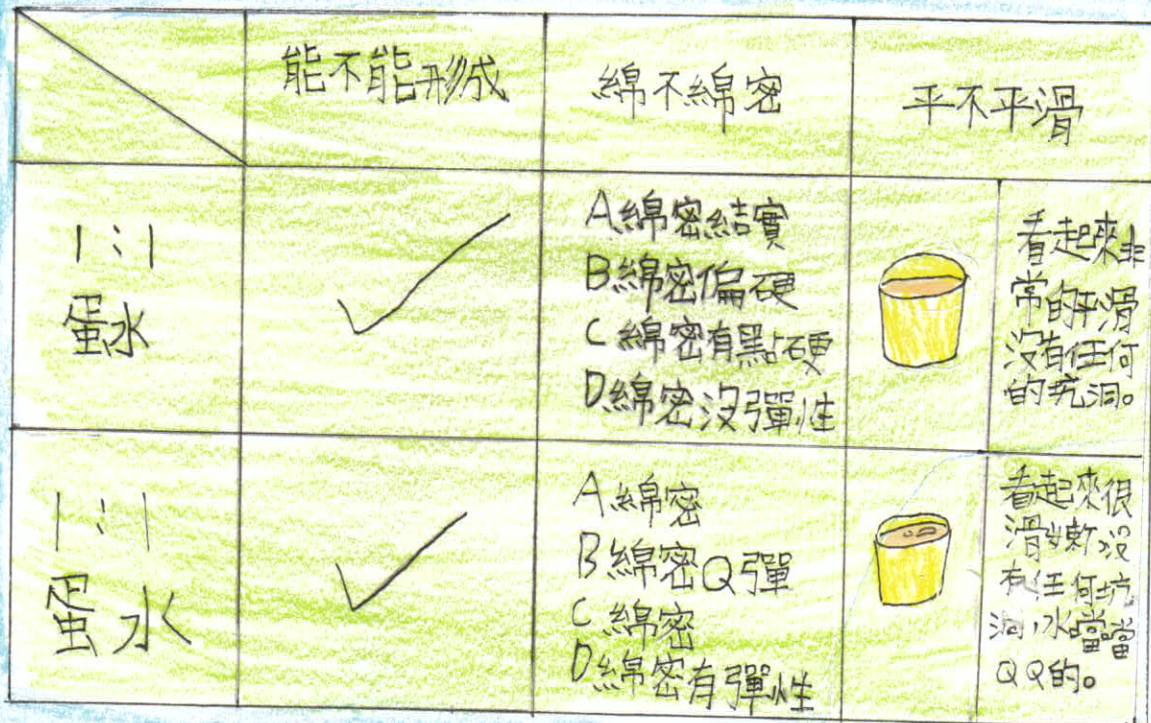 能不能形成
綿不綿密
平不平滑
1:1
蛋水
A綿密結實
B綿密偏硬
C綿密有點硬
D綿密沒彈性
看起來非
常的平滑
沒有任何
的坑洞。
1:1
蛋水
A綿密
B綿密Q彈
C綿密
D綿密有彈性
看起來很
滑嫩沒
有任何坑
洞,水噹噹
QQ的。